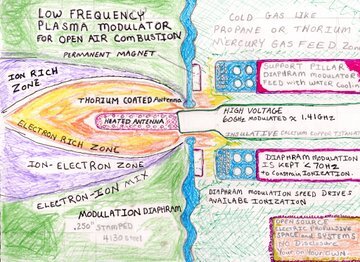 LOW FREQUENCY
PLASMA MODULATOR
FOR OPEN AIR COMBUSTION
PERMANENT MAGNET
ION RICH
ZONE
THORIUM COATED Antenna
HEATED ANTENNA
ELECTRON RICH ZONE
ION-ELECTRON ZONE
ELECTRON-ION MIX
MODULATION DIAPHRAM
.250" STAMPED
4130 Steel
COLD GAS LIKE
PROPANE OR THORIUM
MERCURY GAS FEED ZONE
SUPPORT PILLAR
DIAPHRAM MODULATOR
FEED with WATER Cooling
HIGH VOLTAGE
60GHz MODULATED x 1.41GHz
INSULATIVE CALCIUM COPPER TITANATE
DIAPHRAM MODULATION
IS KEPT < 70Hz
to Constrain IONIZATION.
DIAPHRAM MODULATION SPEED DRIVES
AVAILABLE IONIZATION
OPEN SOURCE
ELECTRIC PROPULSIVE
SPACE and SYSTEMS
NO Disclosure
Your on Your Own.